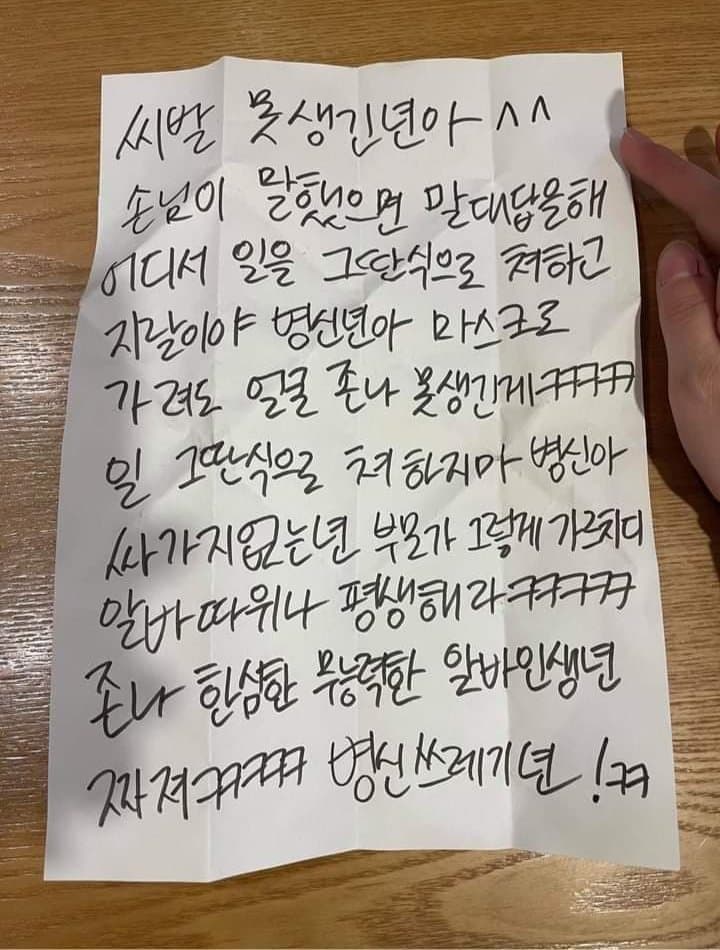 씨발 못생긴년아^^
손님이 말했으면 말대답을해
어디서 일을 그딴식으로 쳐하고
지랄이야 병신년아 마스크로
가려도 얼굴 존나 못생긴게ㅋㅋㅋㅋ
일 그딴식으로 쳐하지마 병신아
싸가지없는년 부모가 그렇게 가르치디
알바따위나 평생해라ㅋㅋㅋㅋㅋ
존나 한심한 무능력한 알바인생년
꺼져ㅋㅋㅋㅋ 병신쓰레기년!ㅋㅋ